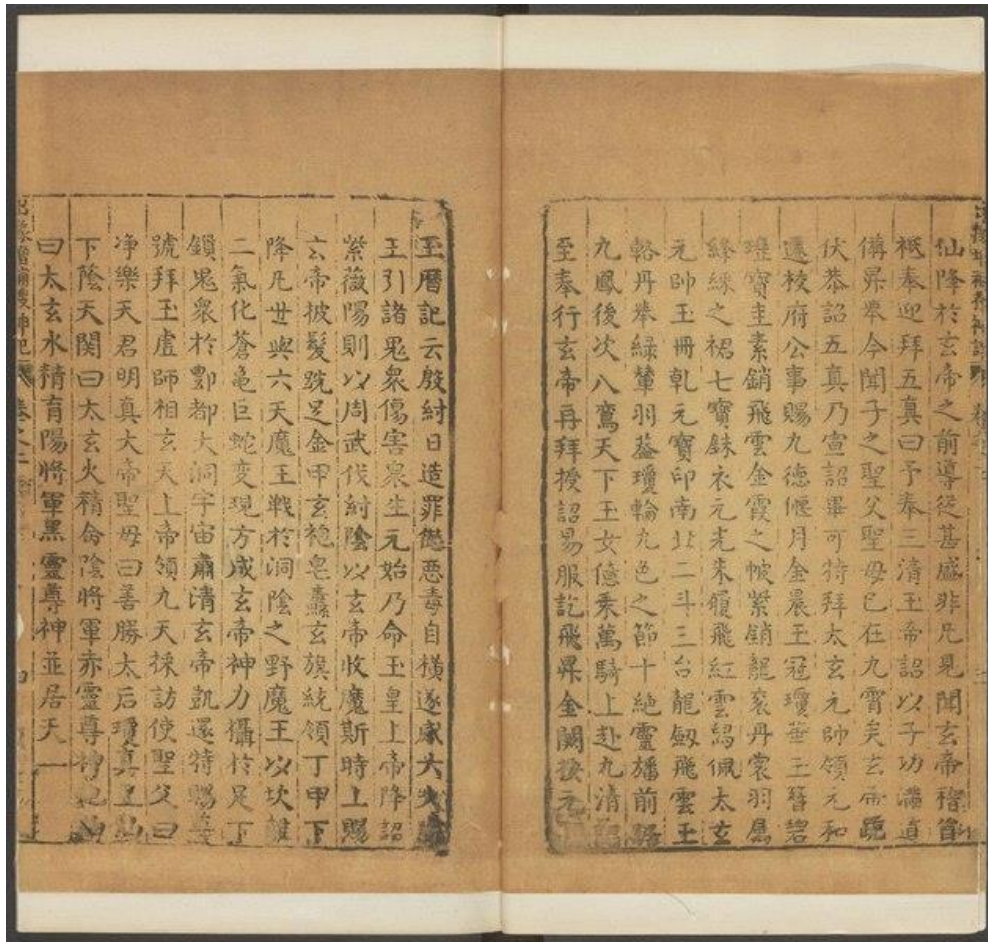 仙降於玄帝之前導從甚盛非凡見聞玄帝稽首
祗奉迎拜五真曰予奉三清玉帝詔以子功滿道
備昇舉今聞子之聖父聖母已在九霄矣玄帝跪
伏恭詔五真乃宣詔畢可特拜太玄元帥領元和
遷校府公事賜九德偃月金晨玉冠瓊華玉簪碧
瑤寶圭素銷飛雲金霞之帔紫銷龍袞丹裳羽屬
絳綵之裙七寶銖衣元光朱履飛紅雲舄佩太玄
元帥玉冊乹元寶印南北二斗三台龍劔飛雲玉
輅丹轝緑輦羽蓋瓊輪九色之節十絶靈旛前
九鳳後次八鸞天下玉女億乘萬騎上赴九清
至奉行玄帝再拜授詔易服訖飛昇金闕按元
至曆記云殷紂日造罪愆惡毒自橫遂感六
王引諸鬼衆傷害衆生元始乃命玉皇上帝降詔
紫薇陽則以周武伐紂陰以玄帝收魔斯時上賜
玄帝披髮跣足金甲玄袍皂纛玄旗統領丁甲下
降凡世與六天魔王戰於洞陰之野魔王以坎離
二氣化蒼龜巨蛇變現方成玄帝神力攝於足下
鎖鬼衆於酆都大洞宇宙肅清玄帝凱還特賜尊
號拜玉虛師相玄天上帝領九天採訪使聖父曰
净樂天君明真大帝聖母曰善勝太后瓊真上
下蔭天関曰太玄火精命陰將軍赤靈尊神
曰太玄水精育陽將軍黑靈尊神並居天一